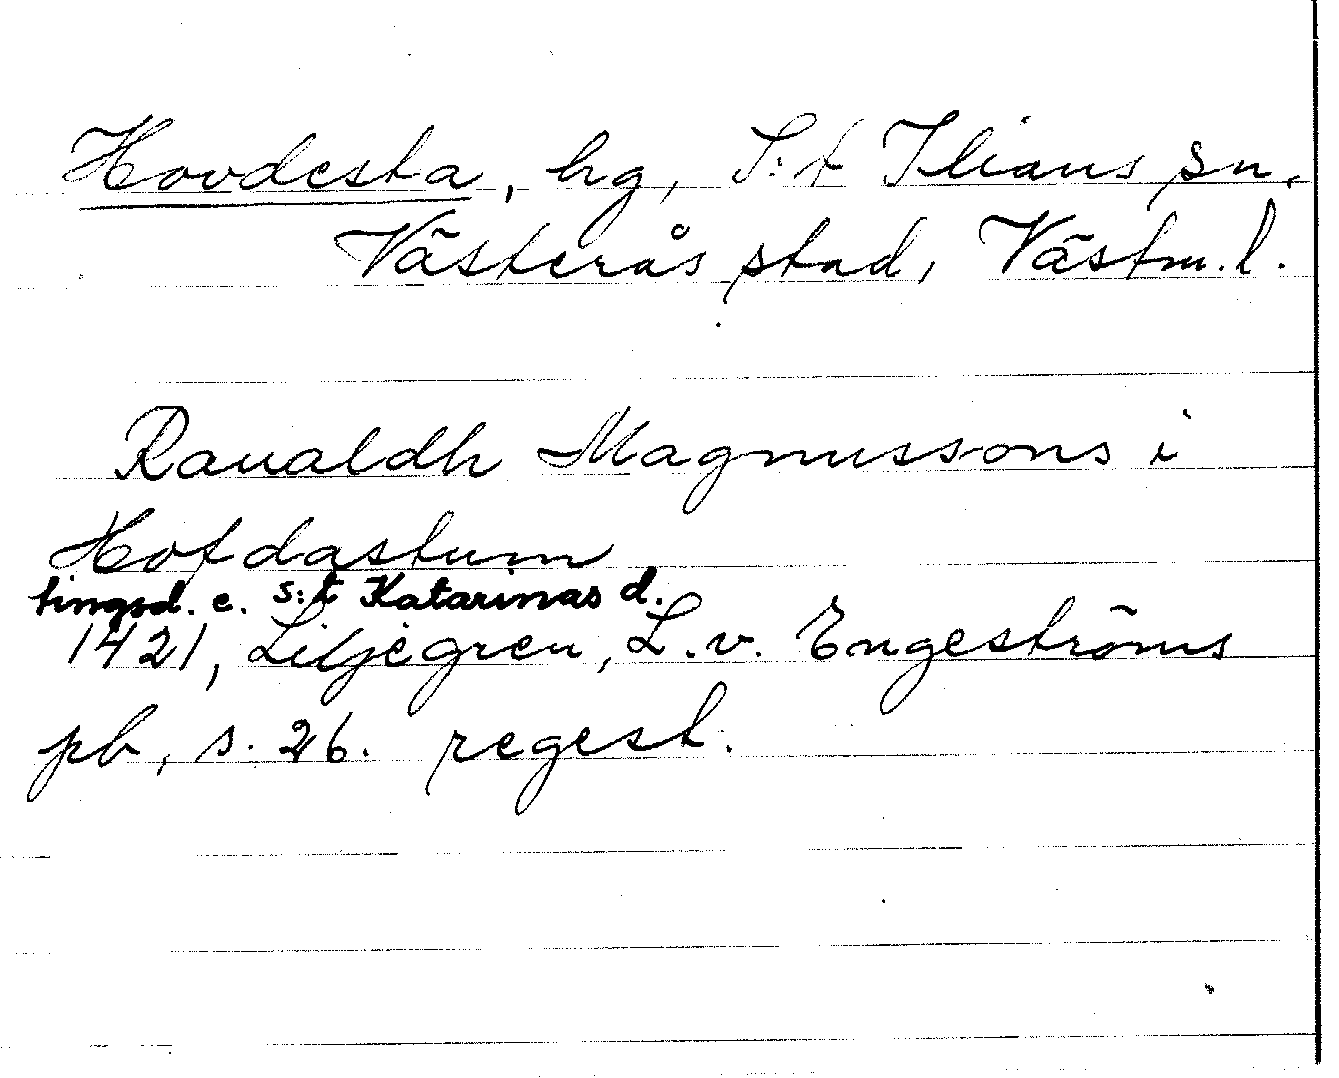 Hovdesta, hg, S:t Ilians sn.
Västerås stad, Västm. l.
Ravaldh Magnussons i
Hofdastum
tingsd. e. s:t Katarinas d.
1421, Liljegren, L. v. Engeströms
pb, s. 26. regest.